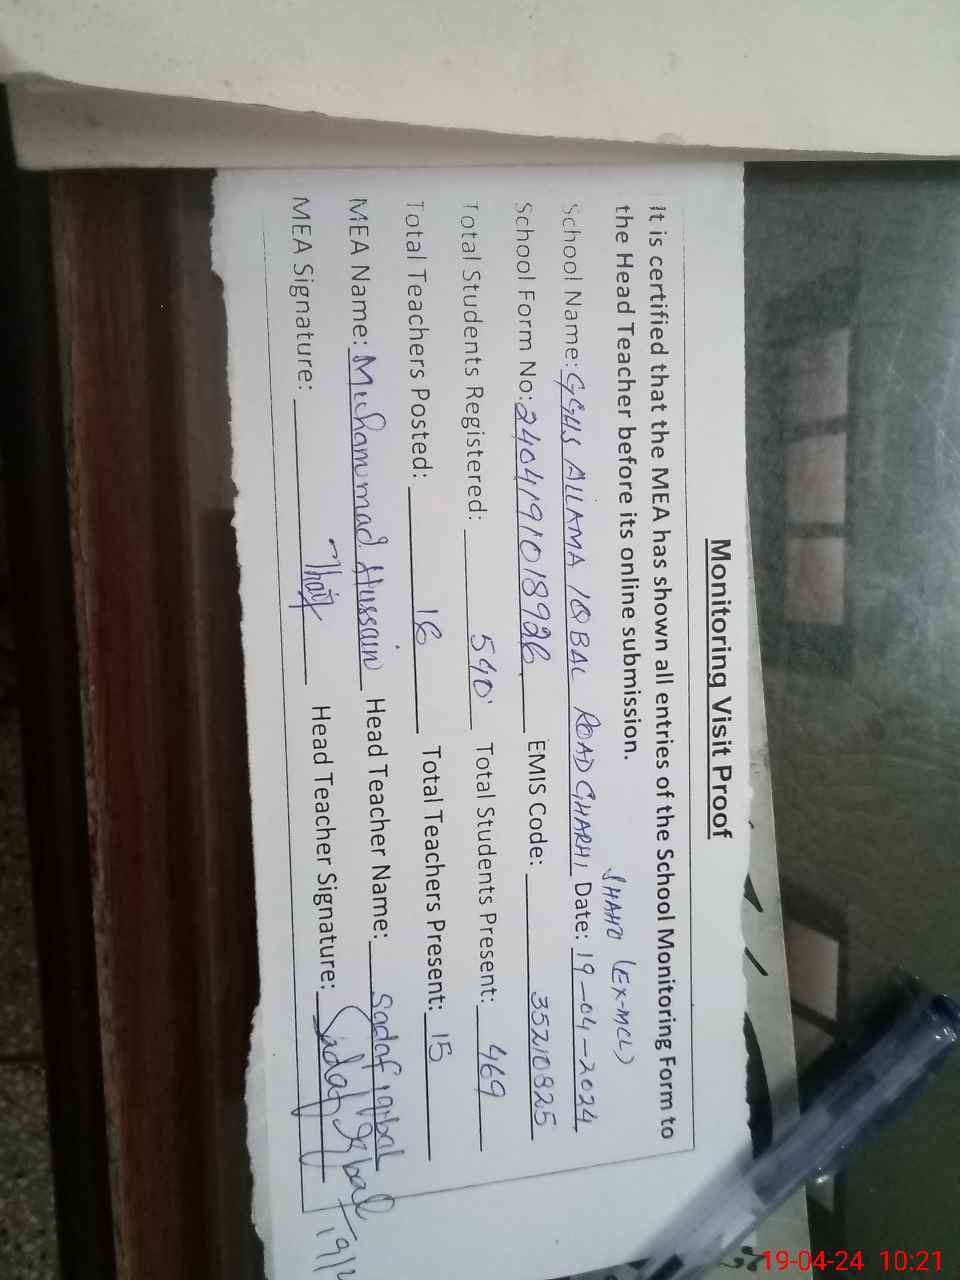 Monitoring Visit Proof
It is certified that the MEA has shown all entries of the School Monitoring Form to
the Head Teacher before its online submission.
SHAHO (EX-MCL)
School Name: GGHS ALLAMA IQBAL ROAD GHARHI Date: 19-04-2024
School Form No: 2404191018926 EMIS Code: 35210825
Total Students Registered: 540 Total Students Present: 469
Total Teachers Posted: 16 Total Teachers Present: 15
MEA Name: Muhammad Hussain Head Teacher Name: Sadaf iqbal
MEA Signature: Head Teacher Signature: Sadaf Iqbal
19-04-24 10:21